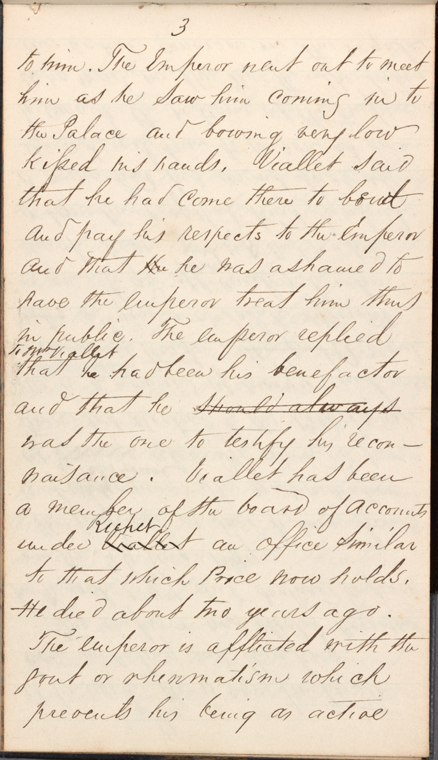 3
to him. The Emperor went out to meet
him as he saw him coming in to
the Palace and bowing very low
kissed his hands. Viallet said
that he had come there to bow
and pay his respects to the Emperor
and that he was ashamed to
have the emperor treat him thus
in public. The emperor replied
to Mr Viallet
that he had been his benefactor
and that he should always
was the one to testify his recon-
naisance. Viallet has been
a member of the board of Accounts
Richet
under an office similar
to that which Price now holds.
He died about two years ago.
The emperor is afflicted with the
gout or rheumatism which
prevents his being as active